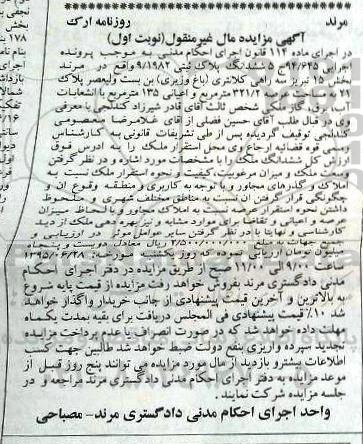 مرند روزنامه ارک
آگهی مزایده مال غیرمنقول(نوبت اول)
در اجرای ماده ۱۱۴ قانون اجرای احکام مدنی به موجب پرونده
اجرایی ۹۴/۶۴۵-۵ ششدانگ پلاک ثبتی ۹/۱۹۸۲واقع در مرند
بخش ۱۵ تبریز سه راهی کلانتری (باغ وزیری) بن بست ولیعصر پلاک
۲۹ به مساحت عرصه ۳۲۱/۲ مترمربع و اعیانی ۱۳۵ مترمربع با انشعابات
آب، برق،گاز ملکی شخص ثالث آقای قادر شیرزاد کندلجی با معرفی
وی در قبال طلب آقای حسین فضلی از آقای غلامرضا معصومی
کندلجی توقیف گردیده پس از طی تشریفات قانونی به کارشناس
رسمی قوه قضائیه ارجاع وی محل استقرار ملک را به ادرس فوق
ارزش کل ششدانگ ملک را با مشخصات مورد اشاره و در نظر گرفتن
وسعت ملک و میزان مرغوبیت،کیفیت و نحوه استقرار ملک نسبت به
املاک و گذرهای مجاور و با توجه به کاربری و منطقه وقوع ان و
چگونگی قرار گرفتن ان نسبت به مناطق مختلف شهری و ملحوظ
داشتن نحوه استقرار عرصه نسبت به املاک مجاور و با لحاظ میزان
عرصه و اعیانی و تقاضا برای موارد مشابه و نیز بهره دهی ملک از دید
کارشناسی و نهایتا با در نظر گرفتن سایر عوامل موثر در ارزیابی و
جمیع جهات به مبلغ ۲/۵۰۰/۰۰۰/۰۰۰ ریال معادل دویست و پنجاه
میلیون تومان ارزیابی نموده که روز یکشنبه مورخه: ۱۳۹۵/۰۶/۲۸
ساعت ۹/۰۰ الی ۱۱/۰۰ صبح از طریق مزایده در دفتر اجرای احکام
مدنی دادگستری مرند بفروش خواهد رفت مزایده از قیمت پایه شروع
به بالاترین و آخرین قیمت پیشنهادی از جانب خریدار واگذار خواهد
شد ۱۰٪ قیمت پیشنهادی فی المجلس دریافت برای بقیه بمدت یکماه
مهلت داده خواهد شد که در صورت انصراف یا عدم پرداخت مزایده
تجدید سپرده واریزی بنفع دولت ضبط خواهد شد طالبین جهت کسب
اطلاعات بیشترو بازدید از مال مورد مزایده می توانند پنج روز قبل از
موعد مزایده به دفتر اجرای احکام مدنی دادگستری مرند مراجعه و در
جلسه مزایده شرکت نمایند .
واحد اجرای احکام مدنی دادگستری مرند- مصباحی